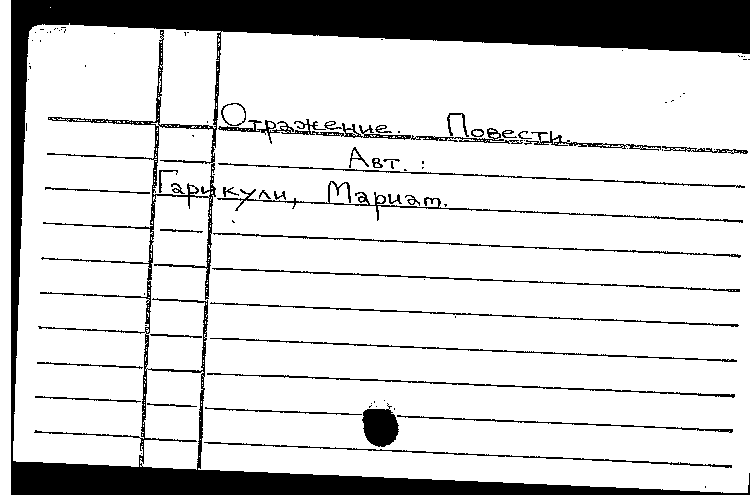 Отражение. Повести.
Авт.:
Гарикули, Мариам.